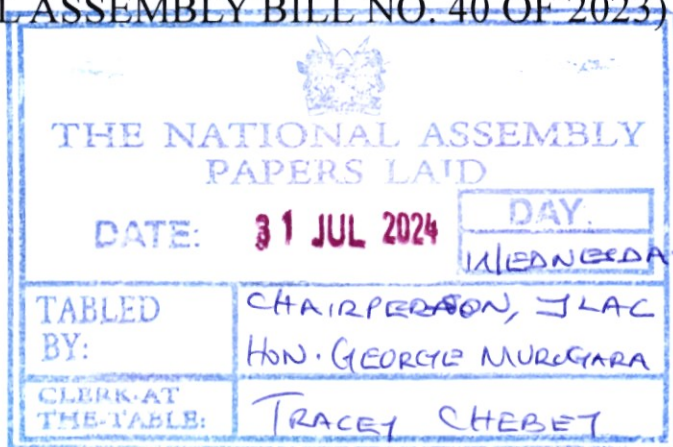 L ASSEMBLY BILL NO. 40 OF 2023)
THE NATIONAL ASSEMBLY
PAPERS LAID
DATE: 31 JUL 2024
DAY.
WEDNESDA
TABLED BY:
CHAIRPERSON, JLAC
HON. GEORGE MURUGARA
CLERK-AT THE-TABLE:
TRACEY CHEBET